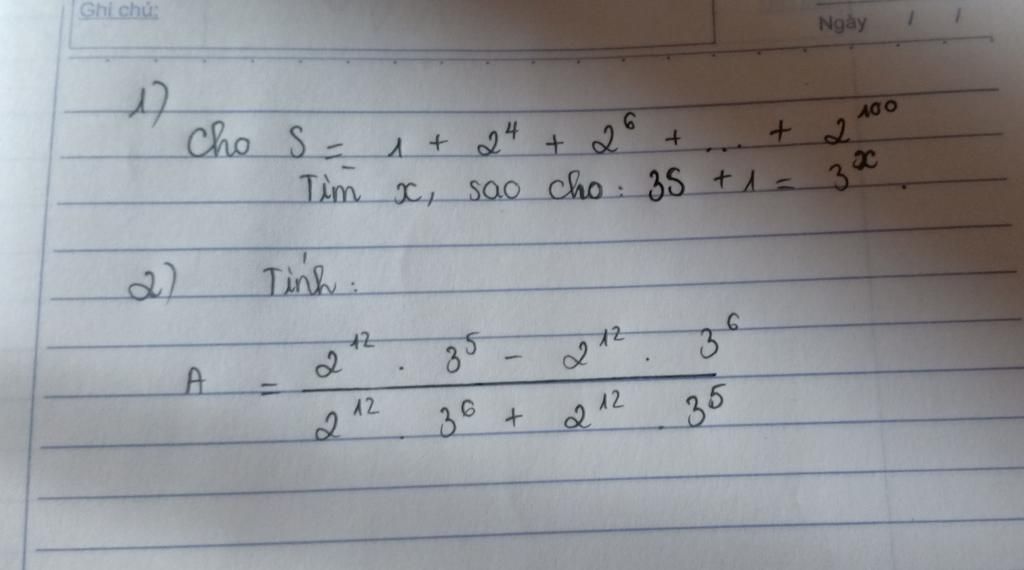 Ghi chú:
Ngày / /
1)
Cho S = 1 + 2^4 + 2^6 + ... + 2^100
Tìm x, sao cho: 3S + 1 = 3^x.
2) Tính:
A = (2^12 . 3^5 - 2^12 . 3^6) / (2^12 . 3^6 + 2^12 . 3^5)